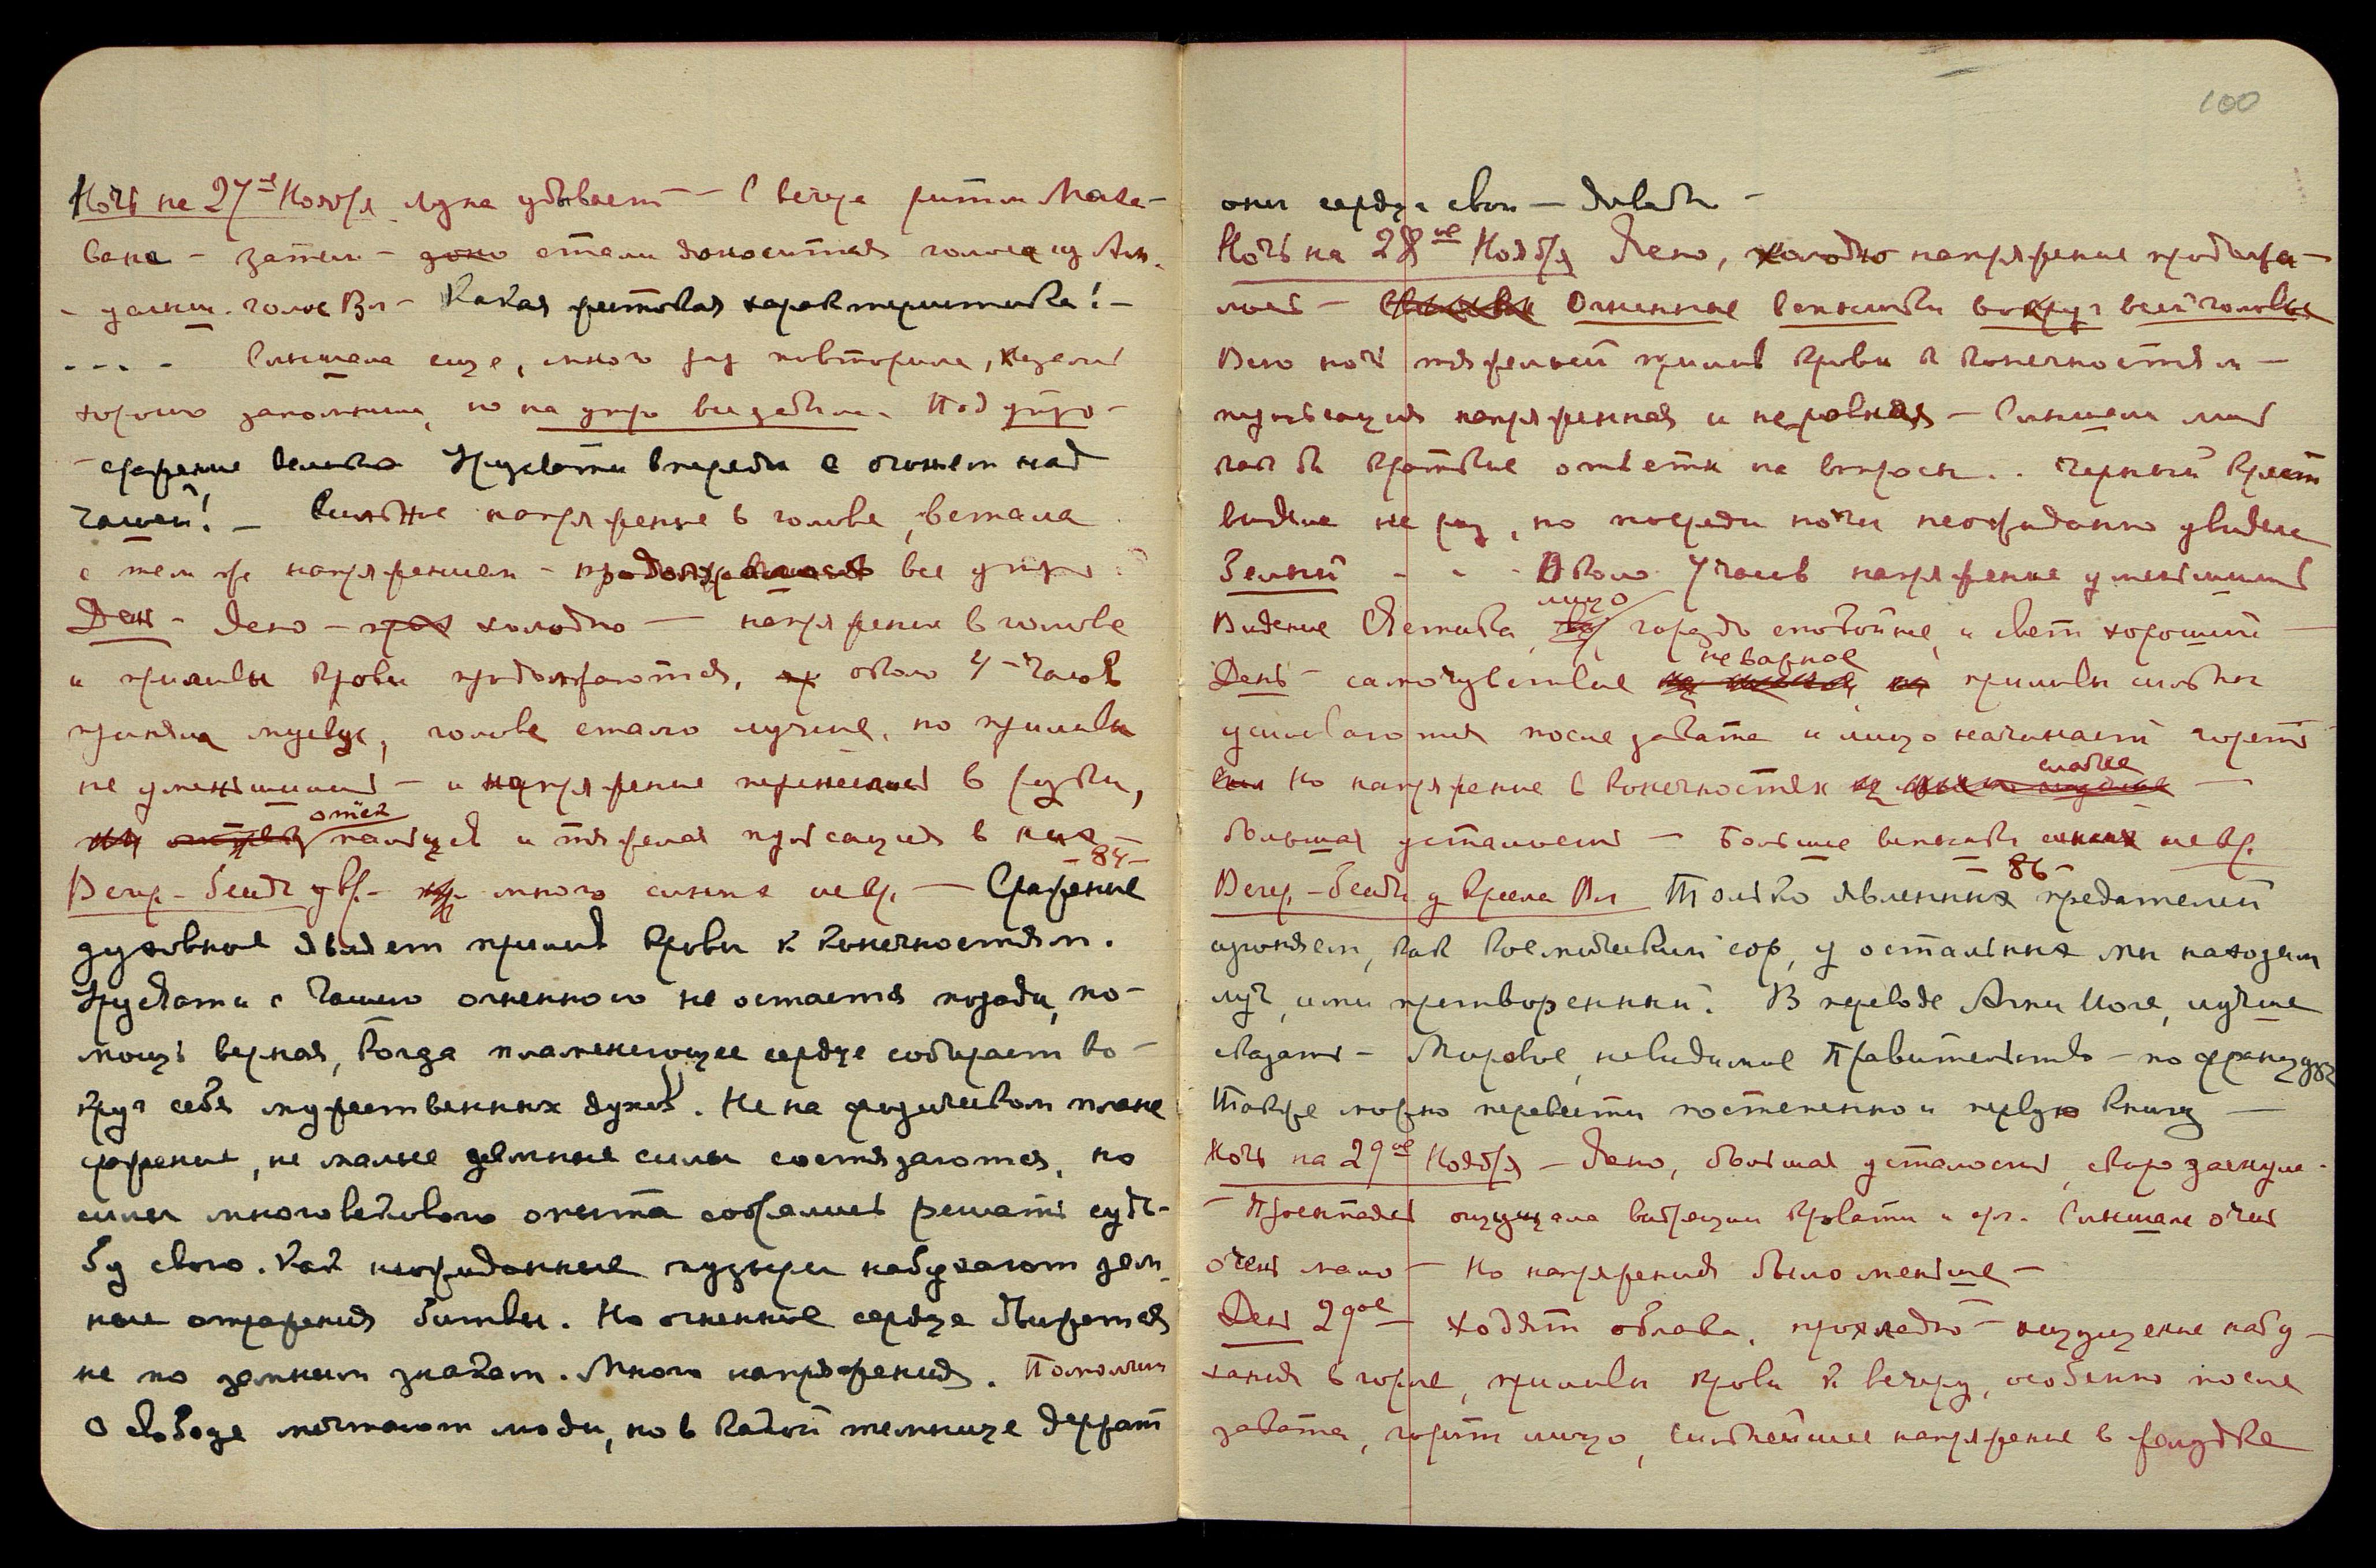 Ночь на 27ое Ноября луна убывает – С вечера ритм Маха-
вана – затем – стали доноситься голоса из Аш.
голос Вл – Какая краткая характеристика! –
.... Слышала еще, много раз повторила, казалось
хорошо запомнила, но на утро все забыла. Под утро –
– сражение велико Урусвати впереди с огнем над
чашей! – Сильное напряжение в голове, встала
с тем же напряжением – продолжавшимся все утро.
День – Ясно – холодно – напряжение в голове
и приливы крови продолжаются, около 4-часов
приняла мускус, голове стало лучше, но приливы
не уменьшились – и напряжение перенеслось в руки,
отек пальцев и тяжелая пульсация в них –
Вечер. – беседа у кр. – много синих искр. – 85 – Сражение
духовное являет прилив крови к конечностям.
Урусвати с Чашею огненною не остается позади, по-
мощь верная, когда пламенеющее сердце собирает во-
круг себя мужественных духов. Не на физическом плане
сражение, не малые земные силы состязаются, но
силы многовекового опыта собрались решать судь-
бу свою. Как неожиданные пузыри набухают зем-
ные отражения битвы. Но огненное сердце движется
не по земным знакам. Много напряжения. Помолчим
О свободе мечтают люди, но в какой темнице держат
100
они сердце свои – довольно –
Ночь на 28ое Ноября Ясно, холодно напряжение продолжа-
лось – Огненные вспышки вокруг всей головы
Всю ночь тяжелый прилив крови к конечностям –
пульсация напряженная и неровная – Слышала лишь
как бы краткие ответы на вопросы.. Черный Крест
видела не раз, но посреди ночи неожиданно увидела
Зелный - - - Около 4 часов напряжение уменьшилось
Видение Святыка, лицо гораздо спокойнее, и свет хороший
День – самочувствие неважное приливы сильно
усиливаются после заката и лицо начинает гореть
Но напряжение в конечностях слабее –
большая усталость – Большие вспышки синих искр.
Вечер. – беседа у Кресла Вл – 86 – Только явленных предателей
изгоняем, как космический сор, у остальных мы находим
луч, ими претворенный. В переводе Агни Йоге, лучше
сказать – Мировое, невидимое Правительство – по французски
Также можно перевести постепенно и первую книгу –
Ночь на 29ое Ноября – Ясно, большая усталость, скоро заснула.
– Просыпаясь ощущала вибрации кровати и Слышала очень
очень мало – Но напряжения было меньше –
День 29ое – ходят облака, прохладно – ощущение набу-
хания в горле, приливы крови к вечеру, особенно после
заката, горит лицо, сильнейшее напряжение в желудке